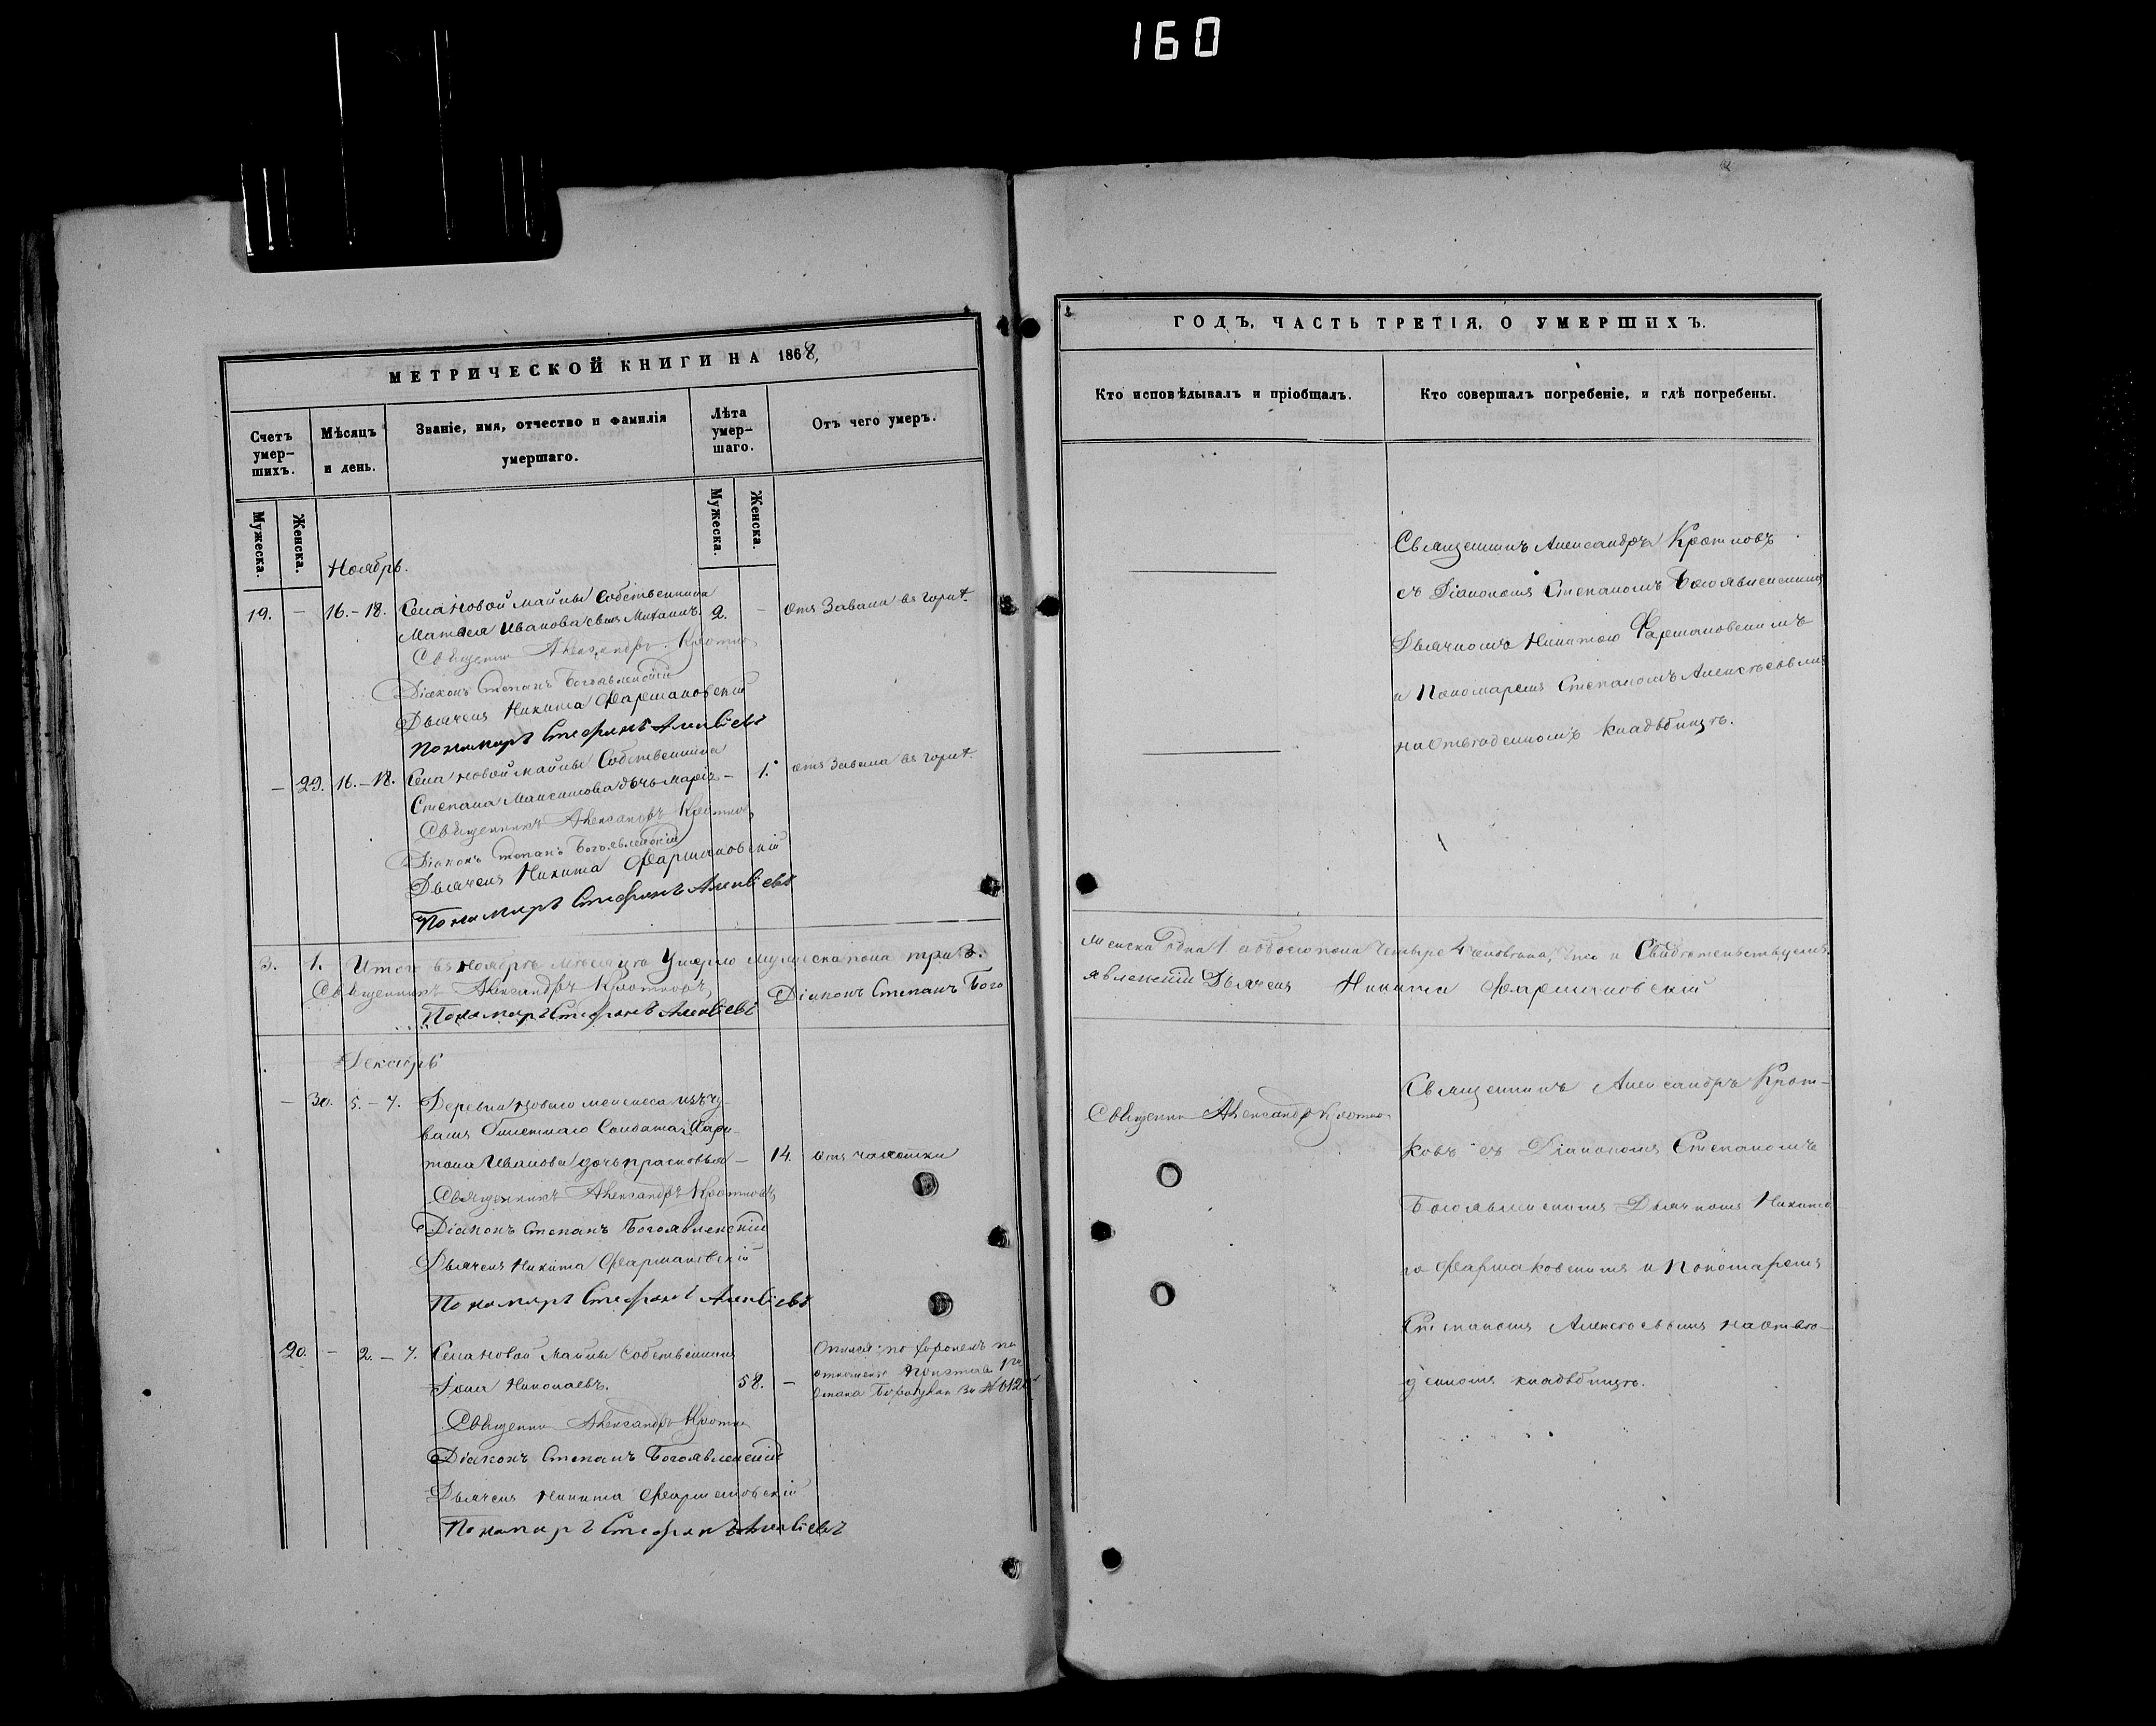 160
МЕТРИЧЕСКОЙ КНИГИ НА 1868,
Счетъ умер-шихъ.
Мѣсяцъ и день.
Званіе, имя, отчество и фамилія умершаго.
Лѣта умер-шаго.
Отъ чего умеръ.
Мужеска.
Женска.
Мужеска.
Женска.
Ноябрь.
19. – 16.–18. Села Новой Майны Собственника 2. – отъ Завала въ горлѣ
Матвея Иванова сынъ Михаилъ
Священникъ Александръ Кротковъ
Діаконъ Степанъ Богоявленскій
Дьячекъ Никита Фармаковскій
Пономарь Стефанъ Алексѣевъ
– 29. 16.–18. Села Новой Майны Собственника 1. отъ Завала въ горлѣ
Степана Максимова дочь Марія –
Священникъ Александръ Кротковъ
Діаконъ Степанъ Богоявленскій
Дьячекъ Никита Фармаковскій
Пономарь Стефанъ Алексѣевъ
3. 1. Итого въ Ноябрѣ мѣсяцѣ Умерло мужеска пола три 3.
Священникъ Александръ Кротковъ, Діаконъ Степанъ Бого
Пономарь Стефанъ Алексѣевъ
Декабрь
– 30. 5.–7. Деревни
вашъ билетнаго Солдата Хари-
тона Иванова дочь Прасковья – 14. отъ чахотки
Священникъ Александръ Кротковъ
Діаконъ Степанъ Богоявленскій
Дьячекъ Никита Фармаковскій
Пономарь Стефанъ Алексѣевъ
20. – 2.–7. Села Новой Майны Собственникъ
Николаевъ. 58. –
Священникъ Александръ Кротковъ
Діаконъ Степанъ Богоявленскій
Дьячекъ Никита Фармаковскій
Пономарь Стефанъ Алексѣевъ
ГОДЪ, ЧАСТЬ ТРЕТІЯ, О УМЕРШИХЪ.
Кто исповѣдывалъ и пріобщалъ.
Кто совершалъ погребеніе, и гдѣ погребены.
Священникъ Александръ Кротковъ
съ Діакономъ Степаномъ Богоявленскимъ
Дьячкомъ Никитою Фармаковскимъ
и Пономаремъ Степаномъ Алексѣевымъ
на отведенномъ кладбищѣ.
женска одна 1 а обоего пола четыре 4 человѣка, что и Свидѣтельствуемъ.
явленскій Дьячекъ Никита Фармаковскій
Священникъ Александръ Кротковъ
Священникъ Александръ Крот-
ковъ съ Діакономъ Степаномъ
Богоявленскимъ Дьячкомъ Никито
ю Фармаковскимъ и Пономаремъ
Степаномъ Алексѣевымъ на отве-
денномъ кладбищѣ.